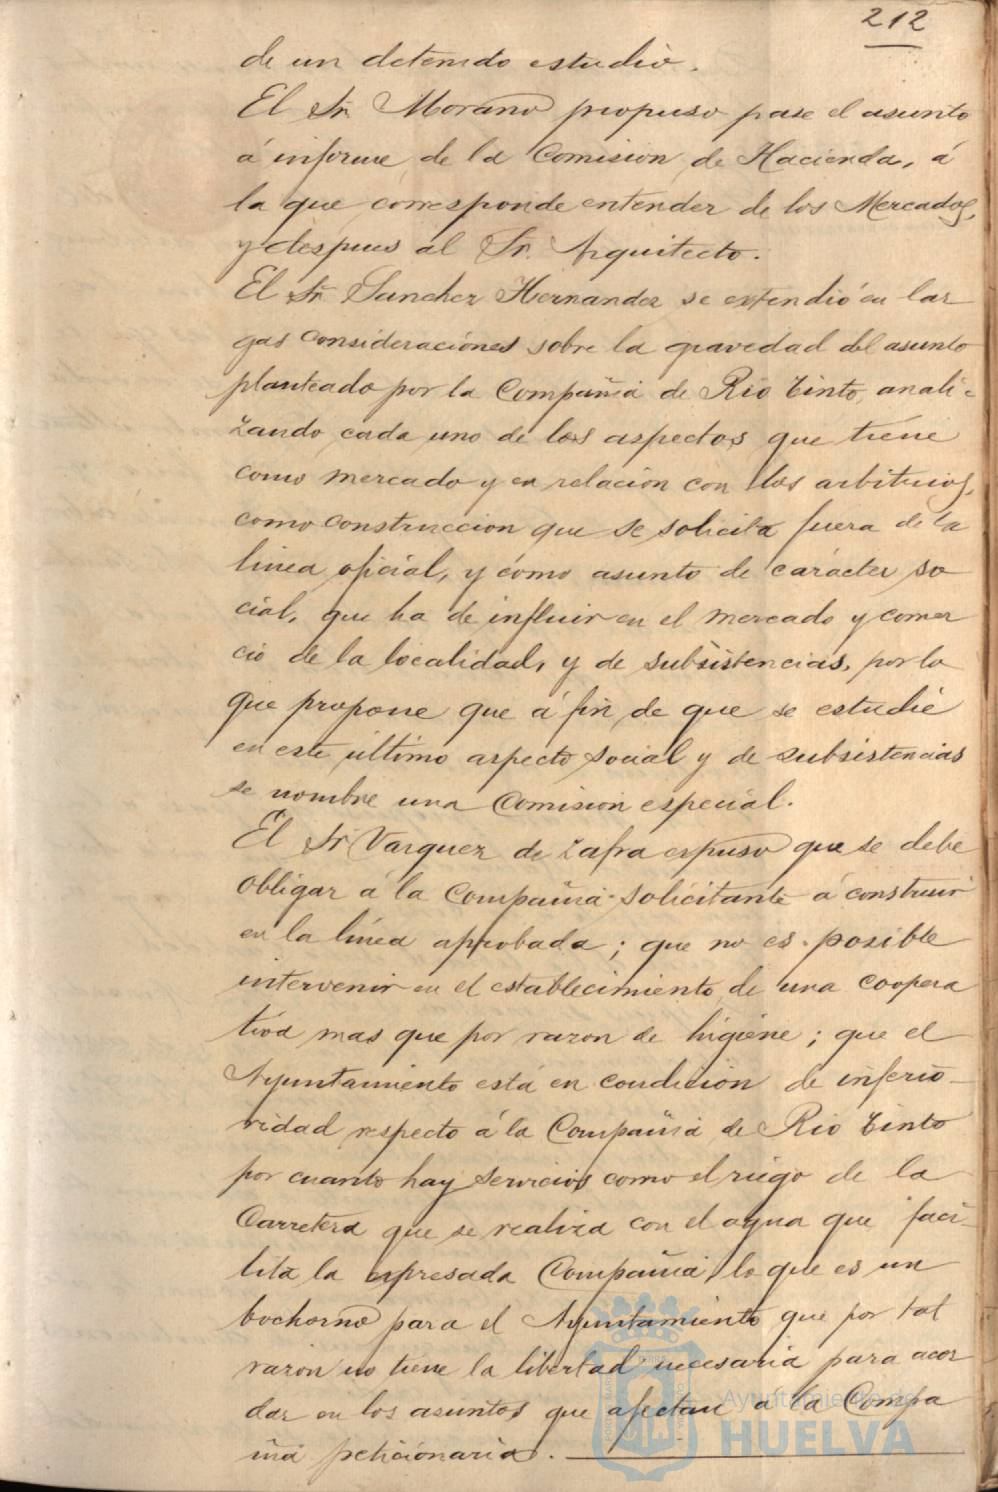 212
de un detenido estudio.
El Sr. Morano propuso pase el asunto
á informe de la Comision de Hacienda, á
la que corresponde entender de los Mercados,
y despues al Sr. Arquitecto.
El Sr. Sanchez Hernandez se extendió en lar
gas consideraciónes sobre la gravedad del asunto
planteado por la Compañia de Rio Tinto, anali-
zando cada uno de los aspectos que tiene
como mercado y en relación con los arbitrios,
como construccion que se solicita fuera de la
linea oficial, y como asunto de carácter so
cial, que ha de influir en el mercado y comer
cio de la localidad, y de subsistencias, por lo
que propone que á fin de que se estudie
en este último aspecto social y de subsistencias
se nombre una Comision especial.
El Sr Vazquez de Zafra expuso que se debe
obligar á la Compañia solicitante á construir
en la línea aprobada; que no es posible
intervenir en el establecimiento de una coopera
tiva mas que por razon de higiene; que el
Ayuntamiento está en condición de inferio-
ridad respecto á la Compañia de Rio Tinto
por cuanto hay servicios como el riego de la
Carretera que se realiza con el agua que faci-
lita la expresada Compañia, lo que es un
bochorno para el Ayuntamiento que por tal
razon no tiene la libertad necesaria para acor
dar en los asuntos que afectan a la Compa
ñia peticionaria.
Ayuntamiento de
HUELVA